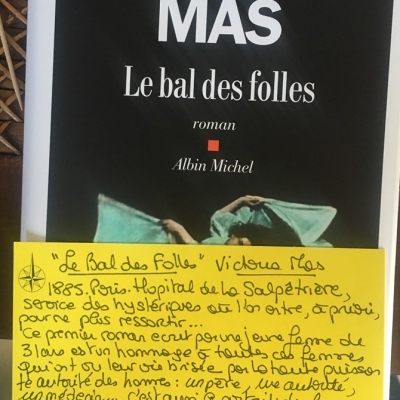 MAS
Le bal des folles
roman
Albin Michel
"Le Bal des Folles" Victoria Mas
1885. Paris. Hôpital de la Salpêtrière,
service des hystériques où l'on entre, a priori,
pour ne plus ressortir...
Ce premier roman écrit par une jeune femme de
31 ans est un hommage à toutes ces femmes
qui ont eu leur vie brisée par la toute puissan
te autorité des hommes : un père, une autorité,
un médecin... c'est aussi le portrait de